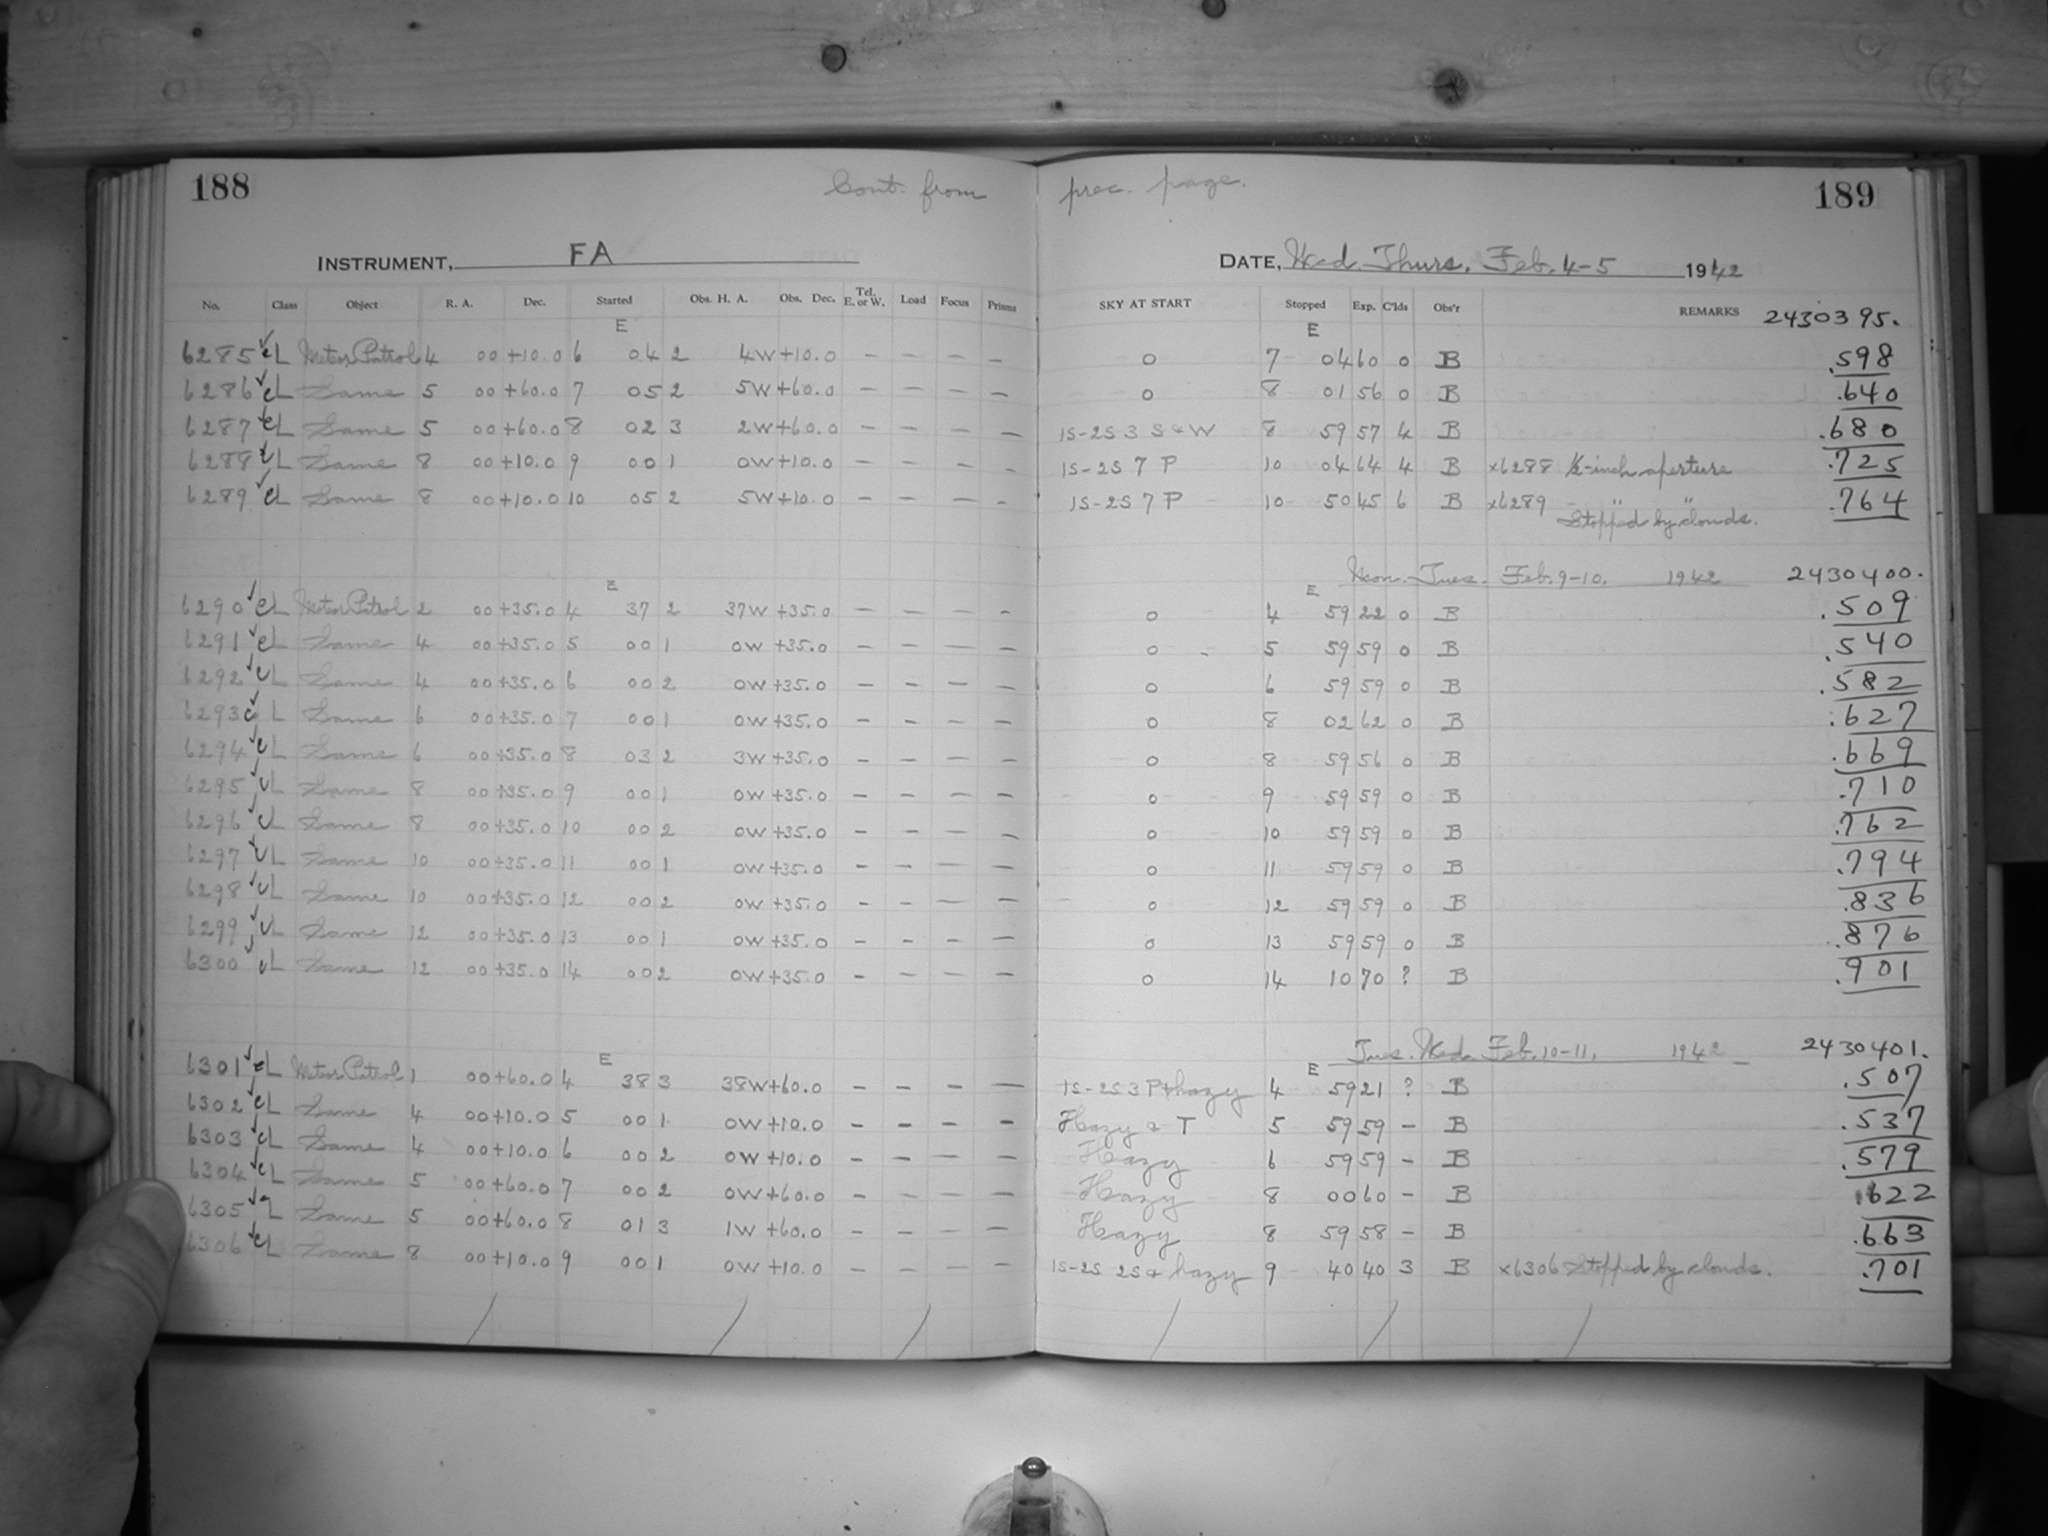 188 Cont. from prec. page. 189
INSTRUMENT, FA DATE, Wed. Thurs. Feb. 4-5 1942
No. Class Object R. A. Dec. Started Obs. H. A. Obs. Dec. Tel. E. or W. Load Focus Prisms SKY AT START Stopped Exp. C'lds Obs'r REMARKS 2430395.
E E
6285 cL Meteor Patrol 4 00 +10.0 6 04 2 4W +10.0 – – – – 0 7 04 60 0 B .598
6286 cL Same 5 00 +60.0 7 05 2 5W +60.0 – – – – 0 8 01 56 0 B .640
6287 cL Same 5 00 +60.0 8 02 3 2W +60.0 – – – – 1S-2S 3 S & W 8 59 57 4 B .680
6288 cL Same 8 00 +10.0 9 00 1 0W +10.0 – – – – 1S-2S 7 P 10 04 64 4 B x6288 ½-inch aperture .725
6289 cL Same 8 00 +10.0 10 05 2 5W +10.0 – – – – 1S-2S 7 P 10 50 45 6 B x6289 " " .764
Stopped by clouds.
Mon. Tues. Feb. 9-10, 1942 2430400.
E E
6290 cL Meteor Patrol 2 00 +35.0 4 37 2 37W +35.0 – – – – 0 4 59 22 0 B .509
6291 cL Same 4 00 +35.0 5 00 1 0W +35.0 – – – – 0 5 59 59 0 B .540
6292 cL Same 4 00 +35.0 6 00 2 0W +35.0 – – – – 0 6 59 59 0 B .582
6293 cL Same 6 00 +35.0 7 00 1 0W +35.0 – – – – 0 8 02 62 0 B .627
6294 cL Same 6 00 +35.0 8 03 2 3W +35.0 – – – – 0 8 59 56 0 B .669
6295 cL Same 8 00 +35.0 9 00 1 0W +35.0 – – – – 0 9 59 59 0 B .710
6296 cL Same 8 00 +35.0 10 00 2 0W +35.0 – – – – 0 10 59 59 0 B .762
6297 cL Same 10 00 +35.0 11 00 1 0W +35.0 – – – – 0 11 59 59 0 B .794
6298 cL Same 10 00 +35.0 12 00 2 0W +35.0 – – – – 0 12 59 59 0 B .836
6299 cL Same 12 00 +35.0 13 00 1 0W +35.0 – – – – 0 13 59 59 0 B .876
6300 cL Same 12 00 +35.0 14 00 2 0W +35.0 – – – – 0 14 10 70 ? B .901
Tues. Wed. Feb. 10-11, 1942 2430401.
E E
6301 cL Meteor Patrol 1 00 +60.0 4 38 3 38W +60.0 – – – – 1S-2S 3 P & hazy 4 59 21 ? B .507
6302 cL Same 4 00 +10.0 5 00 1 0W +10.0 – – – – Hazy & T 5 59 59 – B .537
6303 cL Same 4 00 +10.0 6 00 2 0W +10.0 – – – – Hazy 6 59 59 – B .579
6304 cL Same 5 00 +60.0 7 00 2 0W +60.0 – – – – Hazy 8 00 60 – B .622
6305 cL Same 5 00 +60.0 8 01 3 1W +60.0 – – – – Hazy 8 59 58 – B .663
6306 cL Same 8 00 +10.0 9 00 1 0W +10.0 – – – – 1S-2S 2S & hazy 9 40 40 3 B x6306 Stopped by clouds. .701